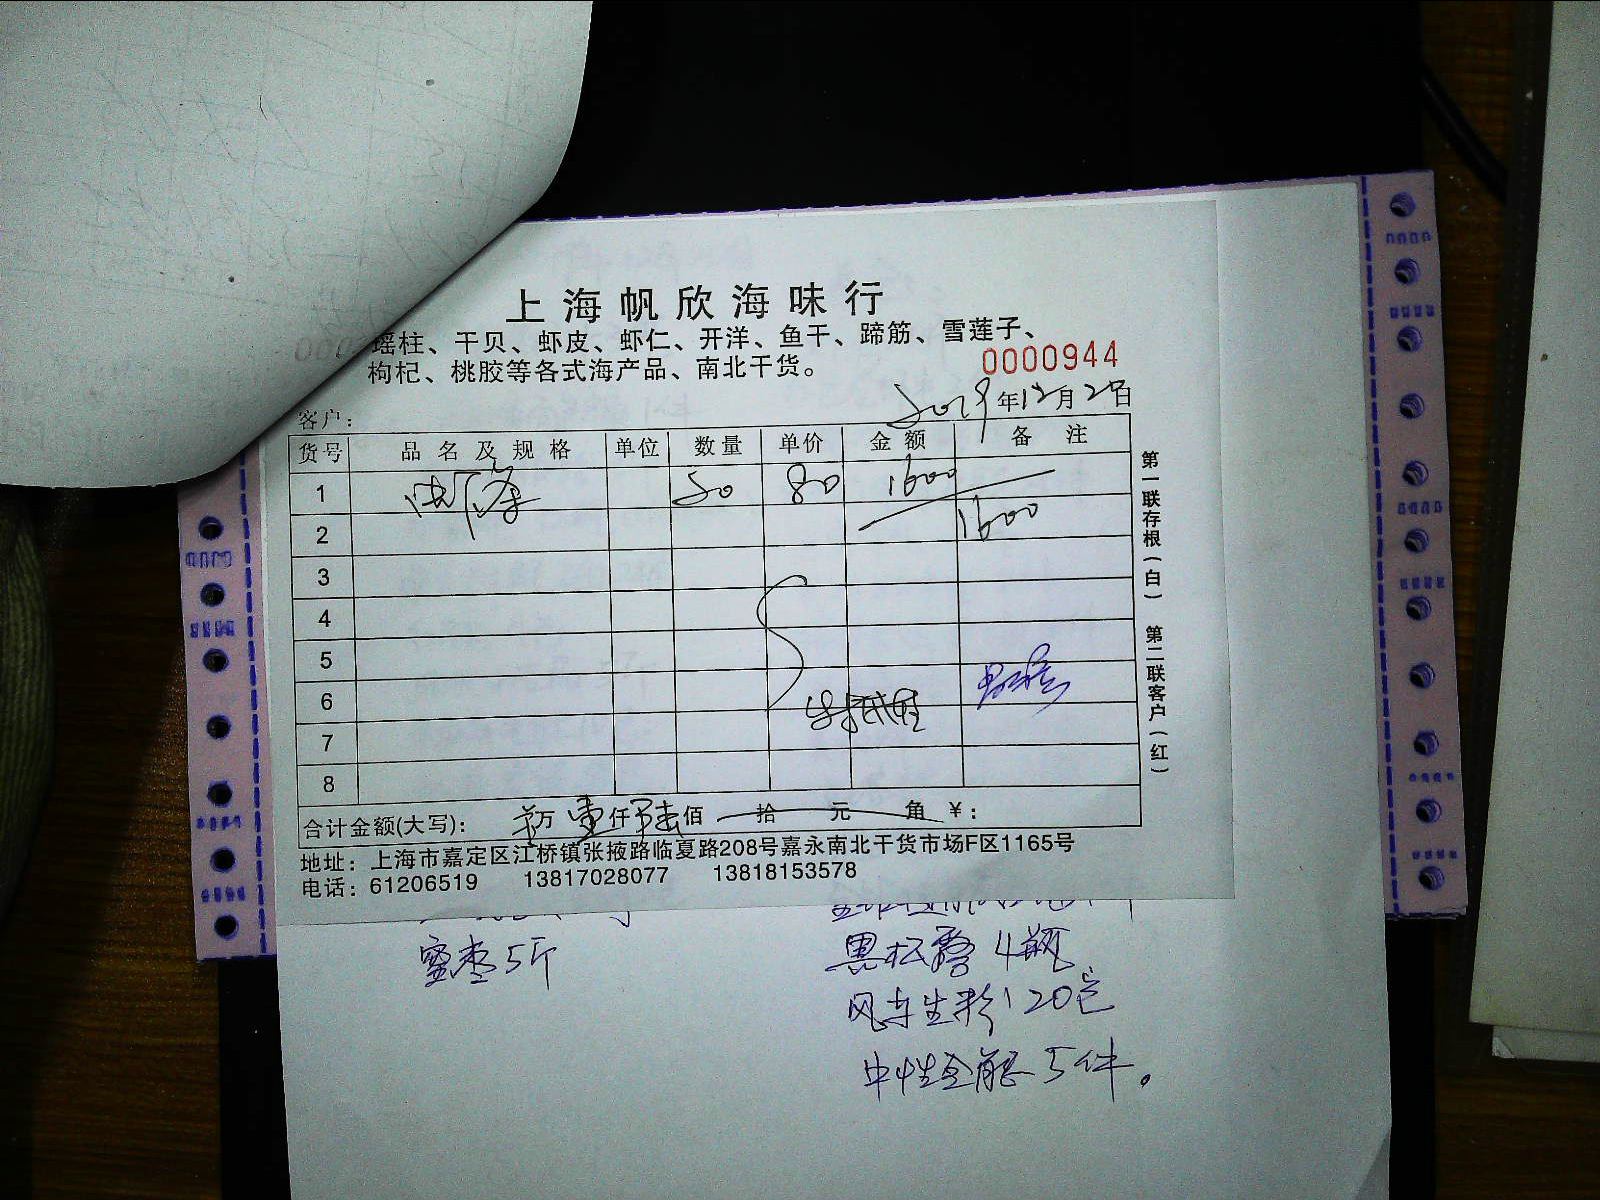 上海帆欣海味行
瑶柱、干贝、虾皮、虾仁、开洋、鱼干、蹄筋、雪莲子、
枸杞、桃胶等各式海产品、南北干货。
0000944
2019年12月2日
客户：
货号 品名及规格 单位 数量 单价 金额 备注
1 20 80 1600
2 1600
3
4
5
6
7
8
合计金额(大写)： 万壹仟陆佰拾元角￥：
地址：上海市嘉定区江桥镇张掖路临夏路208号嘉永南北干货市场F区1165号
电话：61206519 13817028077 13818153578
第一联存根(白) 第二联客户(红)
蜜枣5斤
黑松露4瓶
风车生粉120包
中性全能5件。